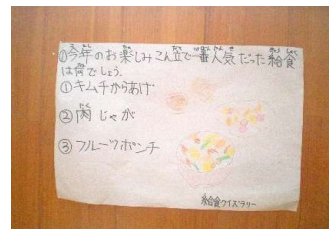 ①今年のお楽しみこん立で一番人気だった給食
は何でしょう。
①キムチからあげ
②肉じゃが
③フルーツポンチ
給食クイズラリー